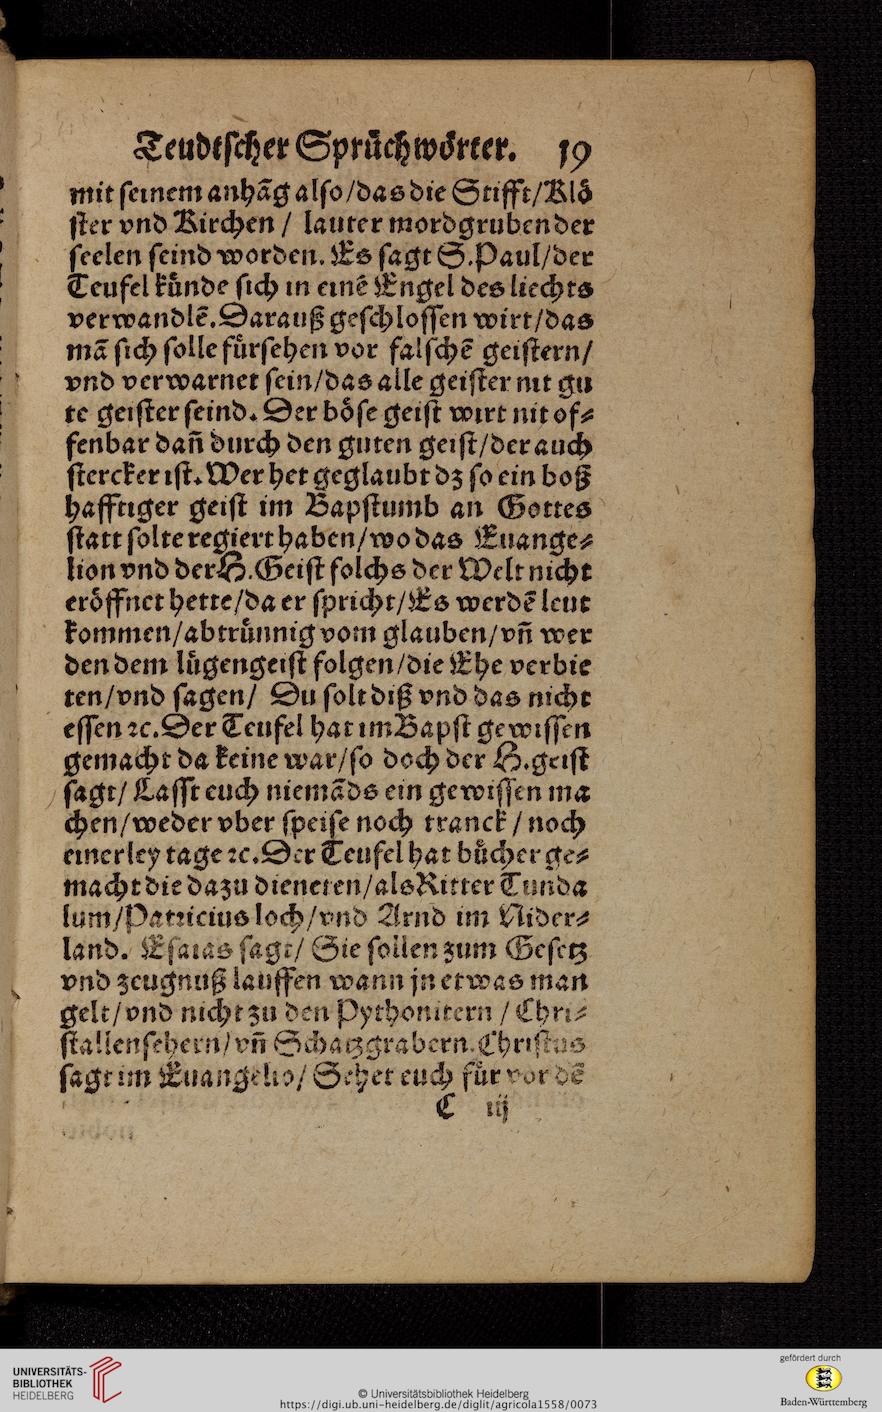 Teudtscher Sprüchwörter. 19
mit seinem anhãg also/das die Stifft/Klö
ster vnd Kirchen / lauter mordgruben der
seelen seind worden. Es sagt S.Paul/der
Teufel künde sich in einẽ Engel des liechts
verwandlẽ. Darauß geschlossen wirt/das
mã sich solle fürsehen vor falschẽ geistern/
vnd verwarnet sein/das alle geister nit gu
te geister seind. Der böse geist wirt nit of⸗
fenbar dañ durch den guten geist/der auch
stercker ist. Wer het geglaubt dz so ein boß
hafftiger geist im Bapstumb an Gottes
statt solte regiert haben/wo das Euange⸗
lion vnd der H.Geist solchs der Welt nicht
eröffnet hette/da er spricht/Es werdẽ leut
kommen/abtrünnig vom glauben/vñ wer
den dem lügengeist folgen/die Ehe verbie
ten/vnd sagen/ Du solt diß vnd das nicht
essen ⁊c. Der Teufel hat im Bapst gewissen
gemacht da keine war/so doch der H.geist
sagt/ Lasst euch niemãds ein gewissen ma
chen/weder vber speise noch tranck / noch
einerley tage ⁊c. Der Teufel hat bücher ge⸗
macht die dazu dieneten/als Ritter Tunda
lum/Patricius loch/vnd Arnd im Nider⸗
land. Esaias sagt/ Sie sollen zum Gesetz
vnd zeugnuß lauffen wann jn etwas man
gelt/vnd nicht zu den Pythonitern / Chri⸗
stallensehern/vñ Schatzgrabern. Christus
sagt im Euangelio/ Sehet euch für vor dẽ
C iij
UNIVERSITÄTS-
BIBLIOTHEK
HEIDELBERG
© Universitätsbibliothek Heidelberg
https://digi.ub.uni-heidelberg.de/diglit/agricola1558/0073
gefördert durch
Baden-Württemberg